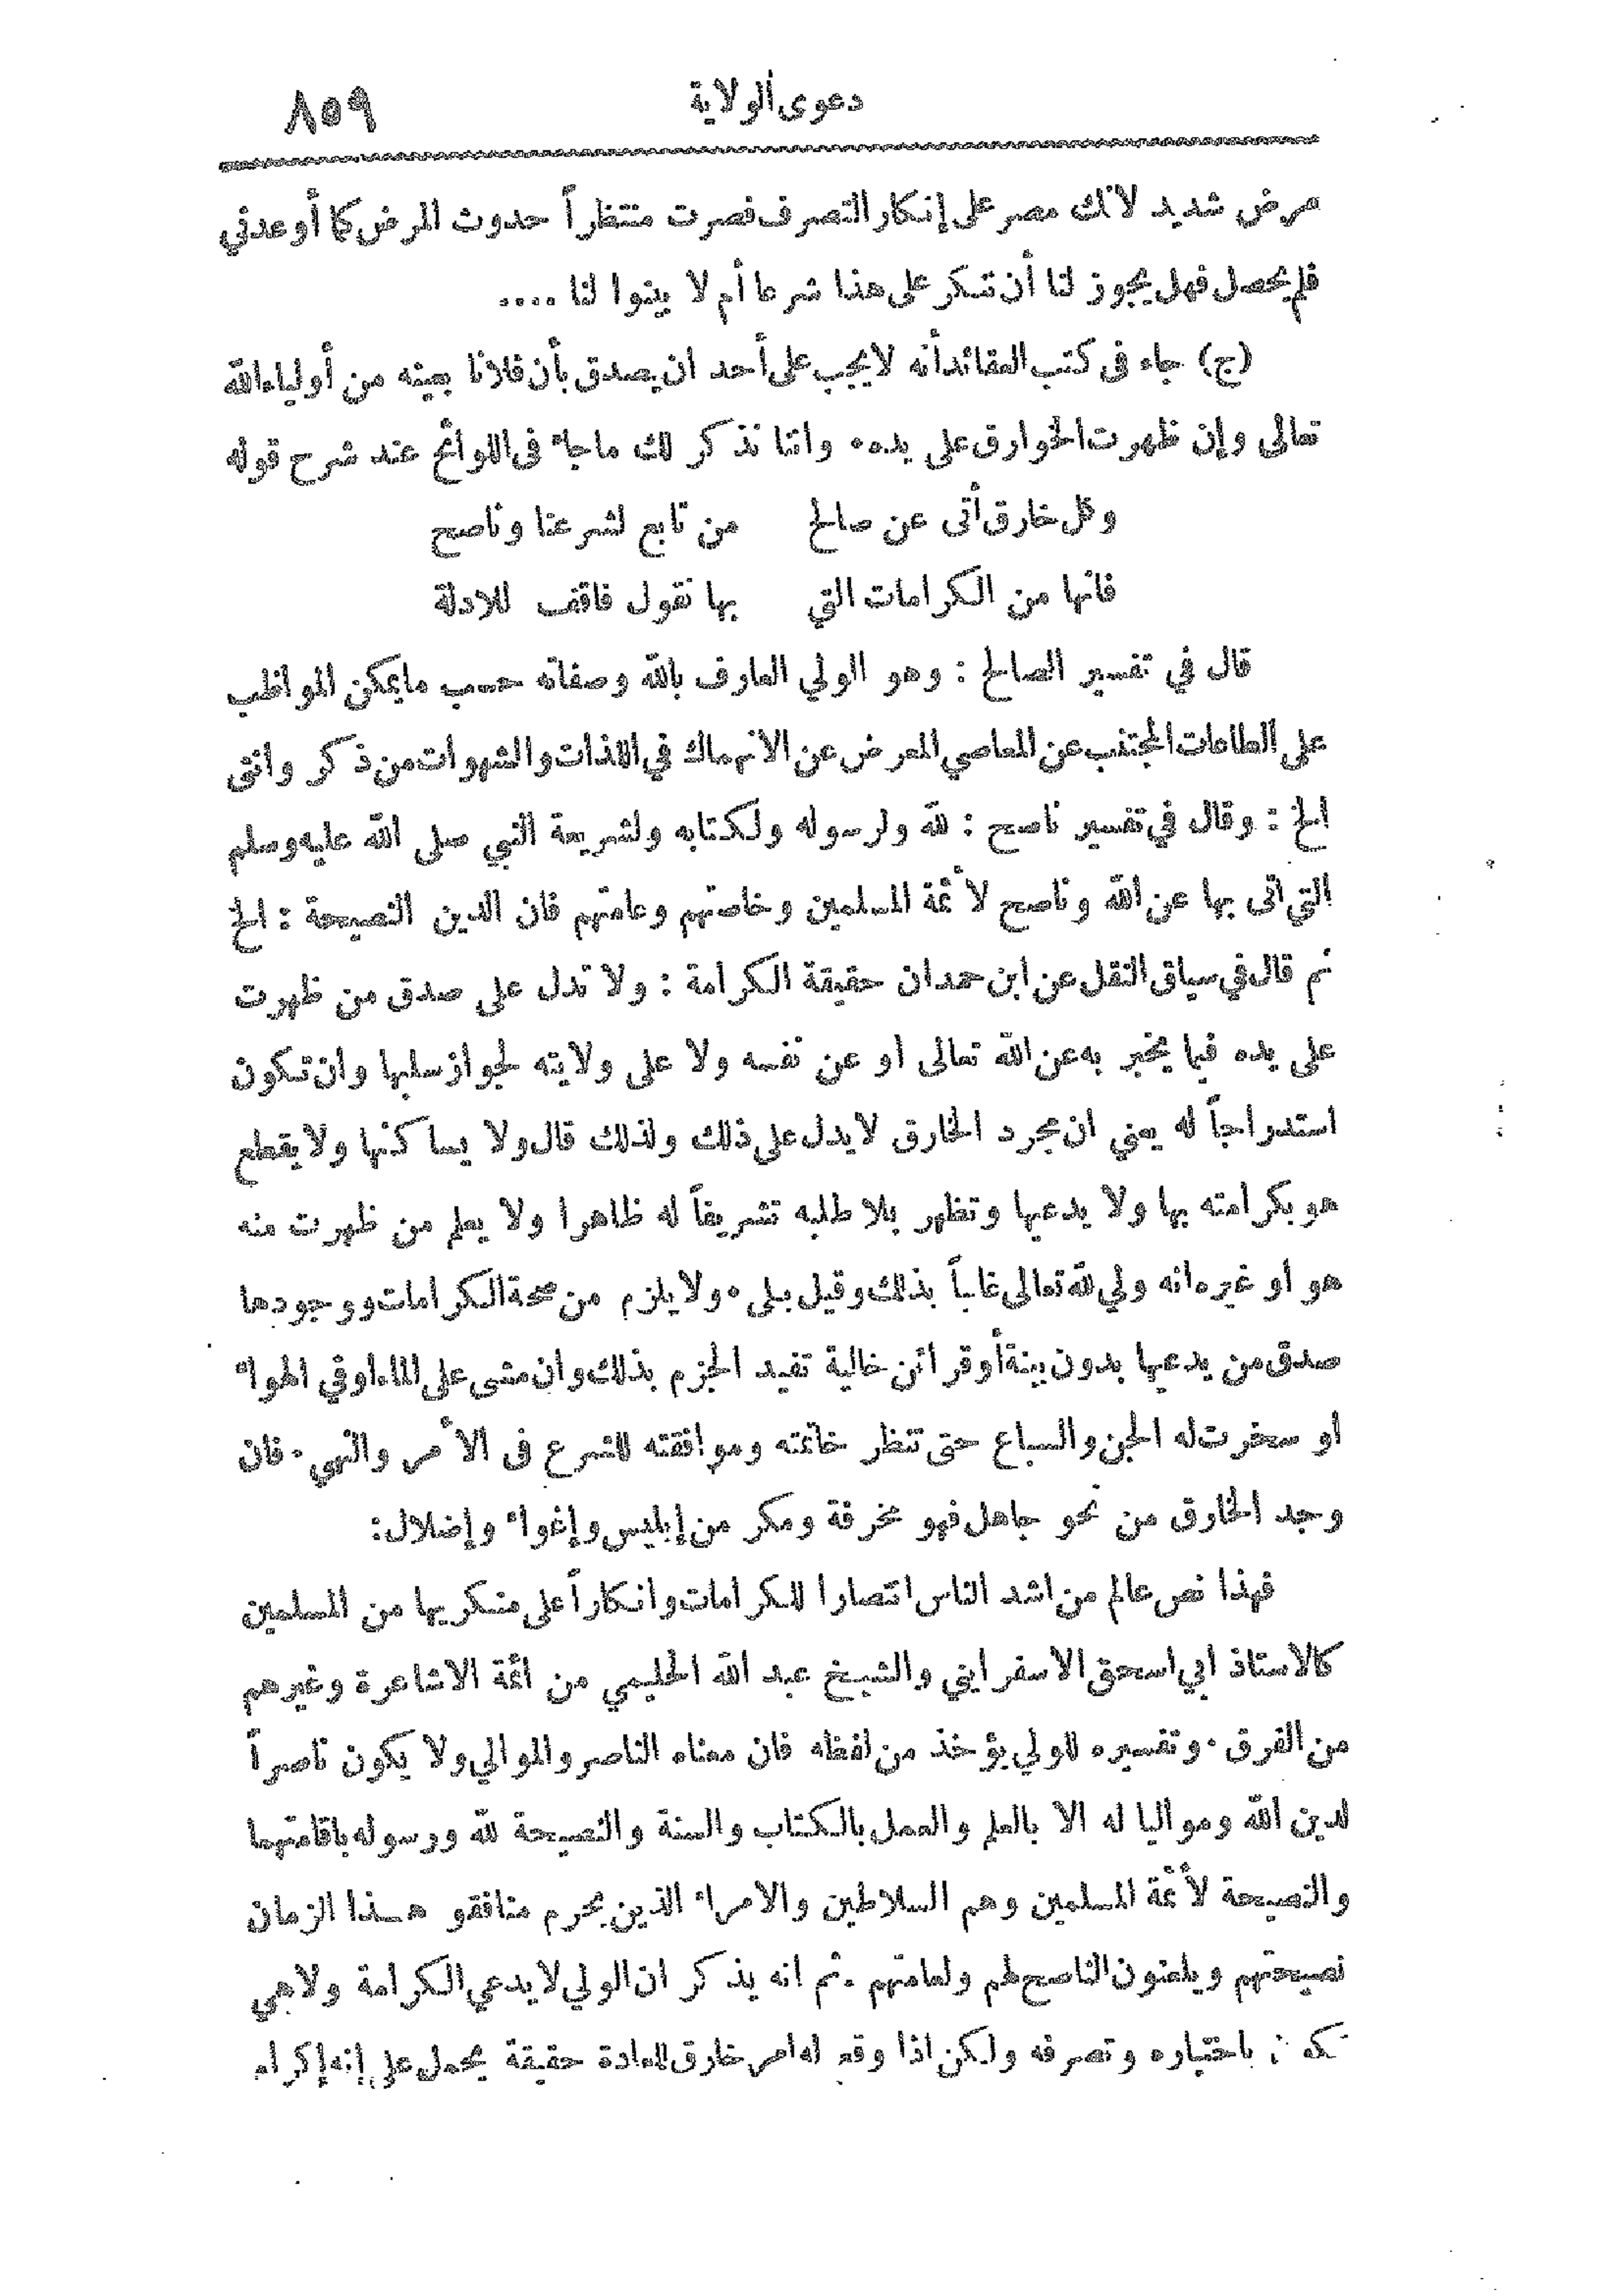 دعوى الولاية ٨٥٩
مرض شديد لانك مصر على إنكار التصرف فصرت منتظراً حدوث المرض كما أوعدني
فلم يحصل فهل يجوز لنا أن ننكر على هذا شرعا أم لا بينوا لنا ....
(ج) جاء فى كتب العقائد أنه لا يجب على أحد ان يصدق بأن فلانا بعينه من أولياء الله
تعالى وإن ظهرت الخوارق على يده ٠ واننا نذكر لك ماجاء فى اللوائح عند شرح قوله
وكل خارق أتى عن صالح من تابع لشرعنا وناصح
فانها من الكرامات التي بها نقول فاقف للادلة
قال في تفسير الصالح : وهو الولي العارف بالله وصفاته حسب مايمكن المواظب
على الطاعات المجتنب عن المعاصي المعرض عن الانهماك في اللذات والشهوات من ذكر وانثى
الخ : وقال في تفسير ناصح : لله ولرسوله ولكتابه ولشريعة النبي صلى الله عليه وسلم
التي اتى بها عن الله وناصح لأئمة المسلمين وخاصتهم وعامتهم فان الدين النصيحة : الخ
ثم قال في سياق النقل عن ابن حمدان حقيقة الكرامة : ولا تدل على صدق من ظهرت
على يده فيما يخبر به عن الله تعالى او عن نفسه ولا على ولايته لجواز سلبها وان تكون
استدراجاً له يعني ان مجرد الخارق لا يدل على ذلك ولذلك قال ولا يساكنها ولا يقطع
هو بكرامته بها ولا يدعيها وتظهر بلا طلبه تشريفاً له ظاهرا ولا يعلم من ظهرت منه
هو او غيره انه ولي لله تعالى غالباً بذلك وقيل بلى ٠ ولا يلزم من صحة الكرامات ووجودها
صدق من يدعيها بدون بينة أو قرائن خالية تفيد الجزم بذلك وان مشى على الماء او في الهواء
او سخرت له الجن والسباع حتى تنظر خاتمته وموافقته للشرع فى الأمر والنهي ٠ فان
وجد الخارق من نحو جاهل فهو مخرقة ومكر من إبليس وإغواء وإضلال:
فهذا نص عالم من اشد الناس انتصارا للكرامات وانكاراً على منكريها من المسلمين
كالاستاذ ابي اسحق الاسفرايني والشيخ عبد الله الحليمي من ائمة الاشاعرة وغيرهم
من الفرق ٠ وتفسيره للولي يؤخذ من لفظه فان معناه الناصر والموالي ولا يكون ناصراً
لدين الله ومواليا له الا بالعلم والعمل بالكتاب والسنة والنصيحة لله ورسوله باقامتهما
والنصيحة لأئمة المسلمين وهم السلاطين والامراء الذين يحرم منافقو هذا الزمان
نصيحتهم ويلعنون الناصح لهم ولعامتهم . ثم انه يذكر ان الولي لا يدعي الكرامة ولا هي
باختياره وتصرفه ولكن اذا وقع له امر خارق للعادة حقيقة يحمل على إنه إكرام